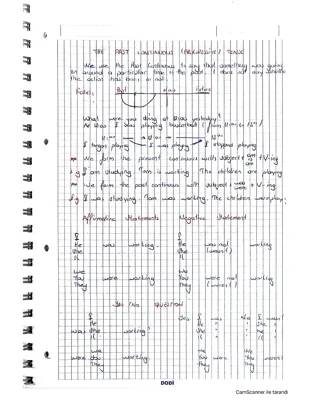 THE PAST CONTINUOUS (PROGRESSIVE) TENSE
We use the Past Continuous to say that something was going
on around a particular time in the past. I does not say whether
the action has been or not.
Past now Future
What were you doing at yesterday?
At I was playing basketball
I began playing I was playing I stopped playing
We form the present continuous with subject + am is are + V-ing
I am studying. Tom is working. The children are playing
We form the past continuous with subject + was were + V-ing
I was studying. Tom was working. The children were playing
Affirmative Statements Negative Statement
I I
He He
She was working. She was not working
It It (wasn't)
We We
You were working. You were not working
They They (weren't)
Yes / No QUESTION
I Yes I was No I wasn't
He He He
was She working? She She
It It It
we We We
were you working? You You
they They They
DODI
CamScanner ile tarandı